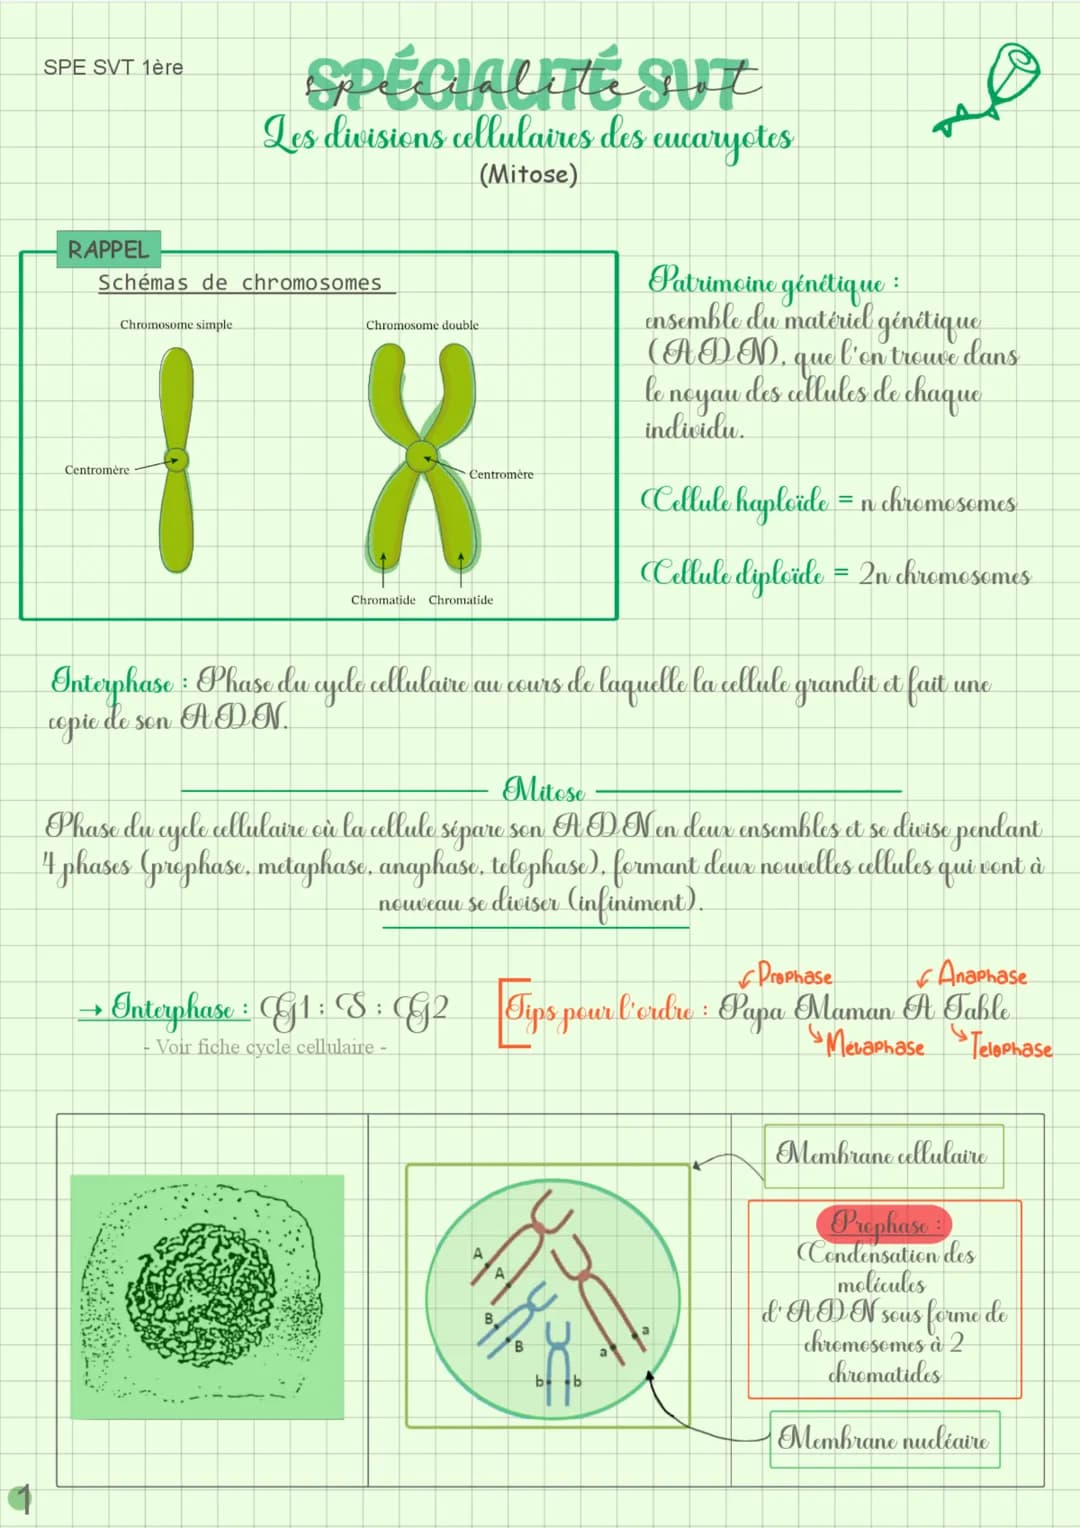 SPE SVT 1ère
SPÉCIALITÉ SVT
specialite svt
Les divisions cellulaires des eucaryotes
(Mitose)
RAPPEL
Schémas de chromosomes
Chromosome simple
Chromosome double
Centromère
Centromère
Chromatide Chromatide
Patrimoine génétique :
ensemble du matériel génétique
(ADN), que l'on trouve dans
le noyau des cellules de chaque
individu.
Cellule haploïde = n chromosomes
Cellule diploïde = 2n chromosomes
Interphase : Phase du cycle cellulaire au cours de laquelle la cellule grandit et fait une
copie de son ADN.
Mitose
Phase du cycle cellulaire où la cellule sépare son ADN en deux ensembles et se divise pendant
4 phases (prophase, metaphase, anaphase, telophase), formant deux nouvelles cellules qui vont à
nouveau se diviser (infiniment).
→ Interphase : G1 : S : G2
- Voir fiche cycle cellulaire -
Prophase
Anaphase
Tips pour l'ordre : Papa Maman A Table
Métaphase
Telophase
Membrane cellulaire
A
A
B
B
a
a
b
b
Prophase :
Condensation des
molécules
d'ADN sous forme de
chromosomes à 2
chromatides
Membrane nucléaire
1